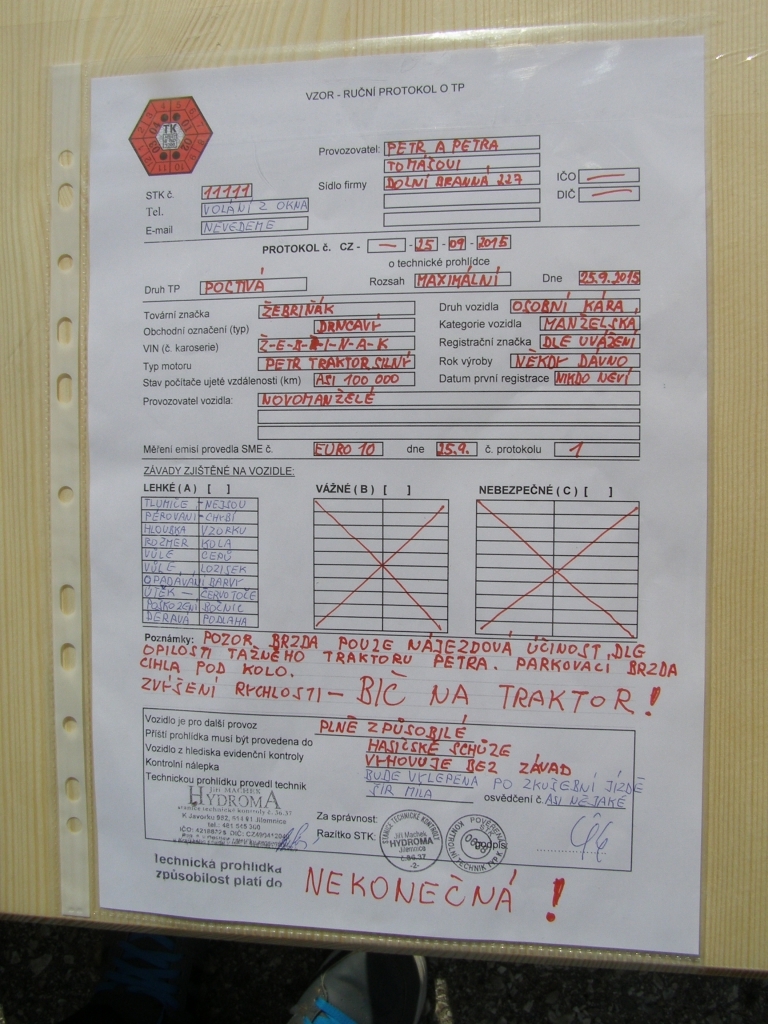 VZOR - RUČNÍ PROTOKOL O TP
TK
Provozovatel: PETR A PETRA
TOMÁČOVI
Sídlo firmy DOLNÍ BRANNÁ 227
IČO —
DIČ —
STK č. 11111
Tel. VOLÁNÍ Z OKNA
E-mail NEVEDEME
PROTOKOL č. CZ - — - 25 - 09 - 2015
o technické prohlídce
Druh TP POCTIVÁ Rozsah MAXIMÁLNÍ Dne 25.9.2015
Tovární značka ŽEBRIŇÁK Druh vozidla OSOBNÍ KÁRA
Obchodní označení (typ) DRNCAVÝ Kategorie vozidla MANŽELSKÁ
VIN (č. karoserie) Ž-E-B-Ř-I-N-A-K Registrační značka DLE UVÁŽENÍ
Typ motoru PETR TRAKTOR SILNÝ Rok výroby NĚKDY DÁVNO
Stav počítače ujeté vzdálenosti (km) ASI 100 000 Datum první registrace NIKDO NEVÍ
Provozovatel vozidla: NOVOMANŽELÉ
Měření emisí provedla SME č. EURO 10 dne 25.9. č. protokolu 1
ZÁVADY ZJIŠTĚNÉ NA VOZIDLE:
LEHKÉ ( A ) [ ] VÁŽNÉ ( B ) [ ] NEBEZPEČNÉ ( C ) [ ]
TLUMIČE - NEJSOU
PÉROVÁNÍ - CHYBÍ
HLOUBKA VZORKU
ROZMĚR KOLA
VŮLE ČEPŮ
VŮLE LOŽISEK
OPADÁVÁNÍ BARVY
ÚTĚK - ČERVOTOČE
POŠKOZENÍ BOČNIC
DĚRAVÁ PODLAHA
Poznámky: POZOR BRZDA POUZE NÁJEZDOVÁ ÚČINOST, DLE
OPILOSTI TAŽNÉHO TRAKTORU PETRA. PARKOVACÍ BRZDA
CIHLA POD KOLO.
ZVÝŠENÍ RYCHLOSTI - BIČ NA TRAKTOR!
Vozidlo je pro další provoz PLNĚ ZPŮSOBILÉ
Příští prohlídka musí být provedena do HASIČSKÉ SCHŮZE
Vozidlo z hlediska evidenční kontroly VYHOVUJE BEZ ZÁVAD
Kontrolní nálepka BUDE VYLEPENA PO ZKUŠEBNÍ JÍZDĚ
Technickou prohlídku provedl technik SIR MILA osvědčení č. ASI NĚJAKÉ
JIŘÍ MACHEK
HYDROMA
stanice technické kontroly č. 36.37
K Javorku 892, 514 01 Jilemnice
Za správnost:
Razítko STK:
STANICE TECHNICKÉ KONTROLY
Jiří Machek
HYDROMA
Jilemnice
č.36.37
-2-
podpis
Technická prohlídka
způsobilost platí do NEKONEČNÁ!